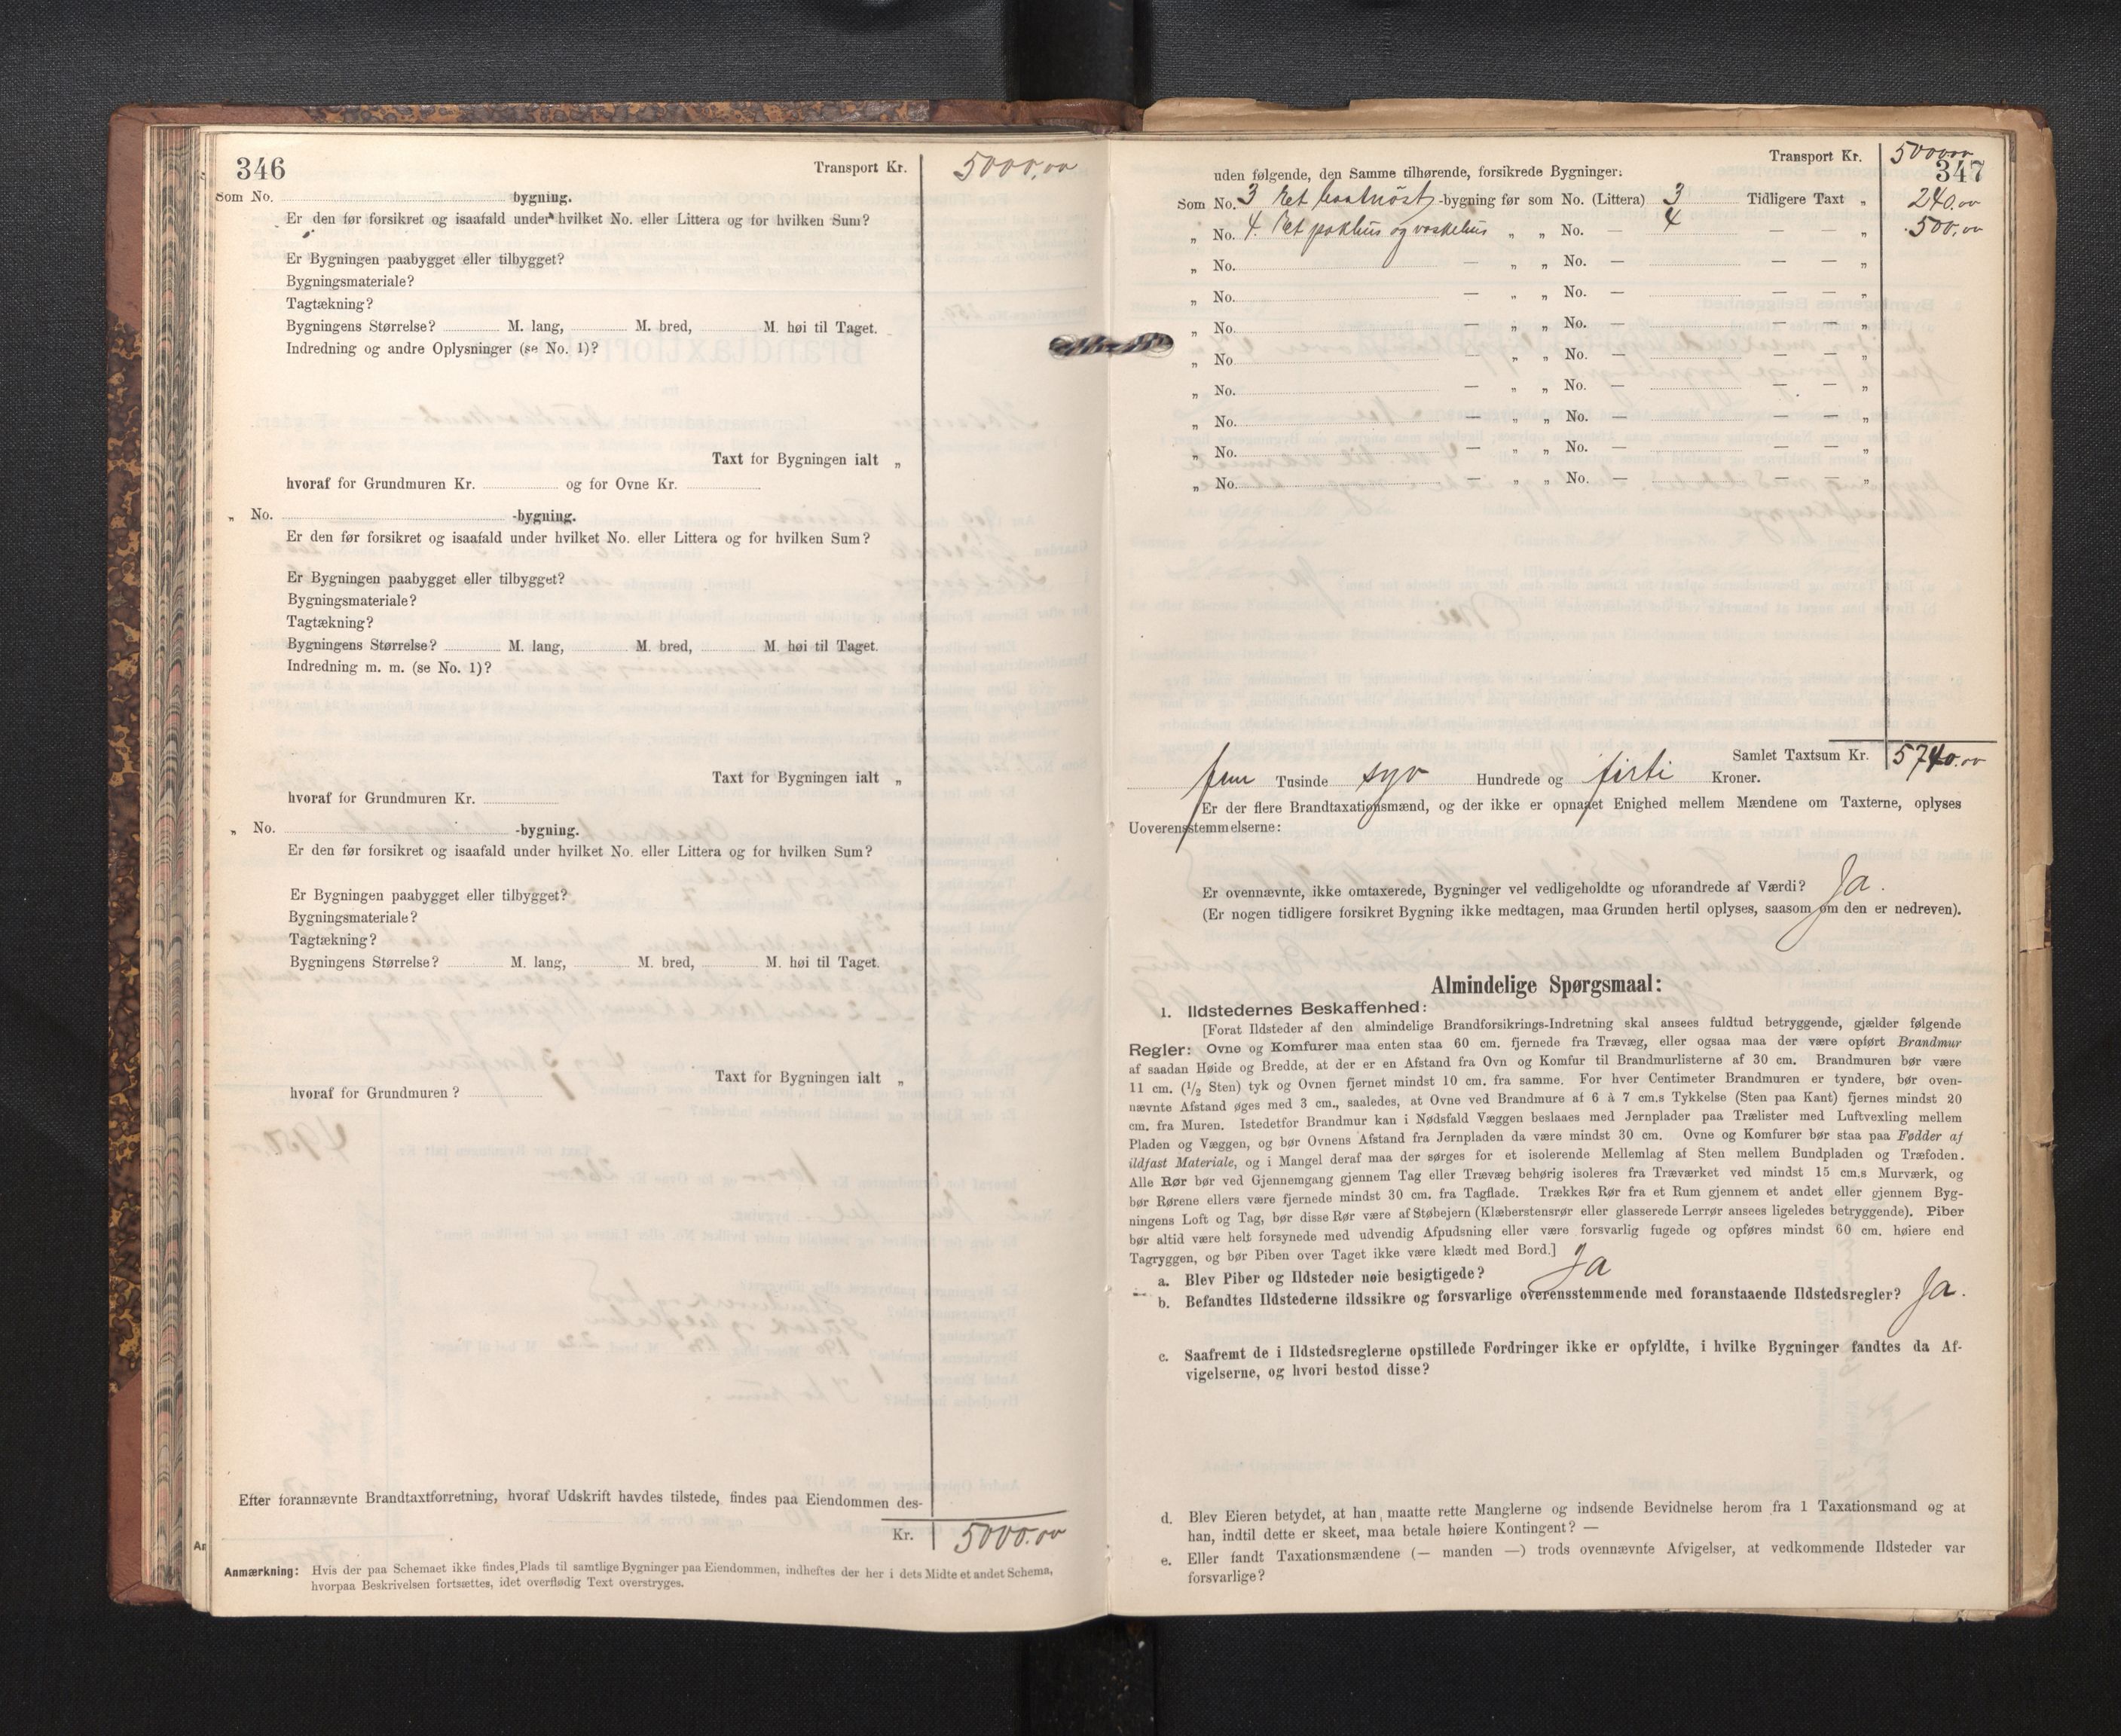 346
Transport Kr. 5000.00
Som No. bygning.
Er den før forsikret og isaafald under hvilket No. eller Littera og for hvilken Sum?
Er Bygningen paabygget eller tilbygget?
Bygningsmateriale?
Tagtækning?
Bygningens Størrelse? M. lang, M. bred, M. høi til Taget.
Indredning og andre Oplysninger (se No. 1)?
Taxt for Bygningen ialt „
hvoraf for Grundmuren Kr. og for Ovne Kr.
„ No. -bygning.
Er den før forsikret og isaafald under hvilket No. eller Littera og for hvilken Sum?
Er Bygningen paabygget eller tilbygget?
Bygningsmateriale?
Tagtækning?
Bygningens Størrelse? M. lang, M. bred, M. høi til Taget.
Indredning m. m. (se No. 1)?
Taxt for Bygningen ialt „
hvoraf for Grundmuren Kr.
„ No. -bygning.
Er den før forsikret og isaafald under hvilket No. eller Littera og for hvilken Sum?
Er Bygningen paabygget eller tilbygget?
Bygningsmateriale?
Tagtækning?
Bygningens Størrelse? M. lang, M. bred, M. høi til Taget.
Taxt for Bygningen ialt „
hvoraf for Grundmuren?
Efter forannævnte Brandtaxtforretning, hvoraf Udskrift havdes tilstede, findes paa Eiendommen des-
Kr. 5000.00
Anmærkning: Hvis der paa Schemaet ikke findes Plads til samtlige Bygninger paa Eiendommen, indheftes der her i dets Midte et andet Schema,
hvorpaa Beskrivelsen fortsættes, idet overflødig Text overstryges.
347
Transport Kr. 5000.00
uden følgende, den Samme tilhørende, forsikrede Bygninger:
Som No. 3 Et baatnöst -bygning før som No. (Littera) 3 Tidligere Taxt „ 240.00
„ No. 4. Et pakhus og vaskehus „ „ No. — 4 — — „ 500.00
„ No. — „ „ No. — — — „
„ No. — „ „ No. — — — „
„ No. „ „ No. — — — „
„ No — „ „ No. — — — „
„ No. — „ „ No. — — — „
„ No. — „ „ No. — — — „
„ No. — „ „ No. — — — „
„ No. — „ „ No. — — — „
Samlet Taxtsum Kr. 5740.00
fem Tusinde syv Hundrede og firti Kroner.
Er der flere Brandtaxationsmænd, og der ikke er opnaaet Enighed mellem Mændene om Taxterne, oplyses
Uoverensstemmelserne:
Er ovennævnte, ikke omtaxerede, Bygninger vel vedligeholdte og uforandrede af Værdi? Ja.
(Er nogen tidligere forsikret Bygning ikke medtagen, maa Grunden hertil oplyses, saasom om den er nedreven).
Almindelige Spørgsmaal:
1. Ildstedernes Beskaffenhed:
[Forat Ildsteder af den almindelige Brandforsikrings-Indretning skal ansees fuldtud betryggende, gjælder følgende
Regler: Ovne og Komfurer maa enten staa 60 cm. fjernede fra Trævæg, eller ogsaa maa der være opført Brandmur
af saadan Høide og Bredde, at der er en Afstand fra Ovn og Komfur til Brandmurlisterne af 30 cm. Brandmuren bør være
11 cm. (1/2 Sten) tyk og Ovnen fjernet mindst 10 cm. fra samme. For hver Centimeter Brandmuren er tyndere, bør oven-
nævnte Afstand øges med 3 cm., saaledes, at Ovne ved Brandmure af 6 à 7 cm.s Tykkelse (Sten paa Kant) fjernes mindst 20
cm. fra Muren. Istedetfor Brandmur kan i Nødsfald Væggen beslaaes med Jernplader paa Trælister med Luftvexling mellem
Pladen og Væggen, og bør Ovnens Afstand fra Jernpladen da være mindst 30 cm. Ovne og Komfurer bør staa paa Fødder af
ildfast Materiale, og i Mangel deraf maa der sørges for et isolerende Mellemlag af Sten mellem Bundpladen og Træfoden.
Alle Rør bør ved Gjennemgang gjennem Tag eller Trævæg behørig isoleres fra Træværket ved mindst 15 cm.s Murværk, og
bør Rørene ellers være fjernede mindst 30 cm. fra Tagflade. Trækkes Rør fra et Rum gjennem et andet eller gjennem Byg-
ningens Loft og Tag, bør disse Rør være af Støbejern (Klæberstensrør eller glasserede Lerrør ansees ligeledes betryggende). Piber
bør altid være helt forsynede med udvendig Afpudsning eller være forsvarlig fugede og opføres mindst 60 cm. høiere end
Tagryggen, og bør Piben over Taget ikke være klædt med Bord.]
a. Blev Piber og Ildsteder nøie besigtigede? Ja
b. Befandtes Ildstederne ildssikre og forsvarlige overensstemmende med foranstaaende Ildstedsregler? Ja.
c. Saafremt de i Ildstedsreglerne opstillede Fordringer ikke er opfyldte, i hvilke Bygninger fandtes da Af-
vigelserne, og hvori bestod disse?
d. Blev Eieren betydet, at han maatte rette Manglerne og indsende Bevidnelse herom fra 1 Taxationsmand og at
han, indtil dette er skeet, maa betale høiere Kontingent? —
e. Eller fandt Taxationsmændene (— manden —) trods ovennævnte Afvigelser, at vedkommende Ildsteder var
forsvarlige?